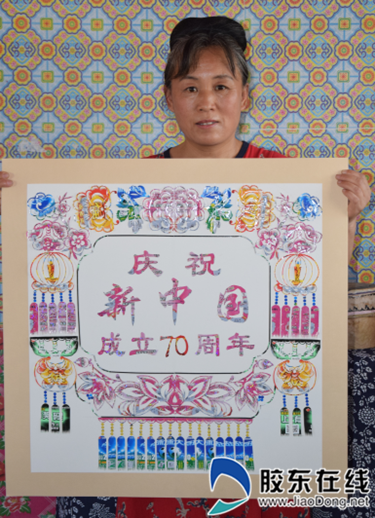 庆祝
新中国
成立70周年
胶东在线
www.JiaoDong.net